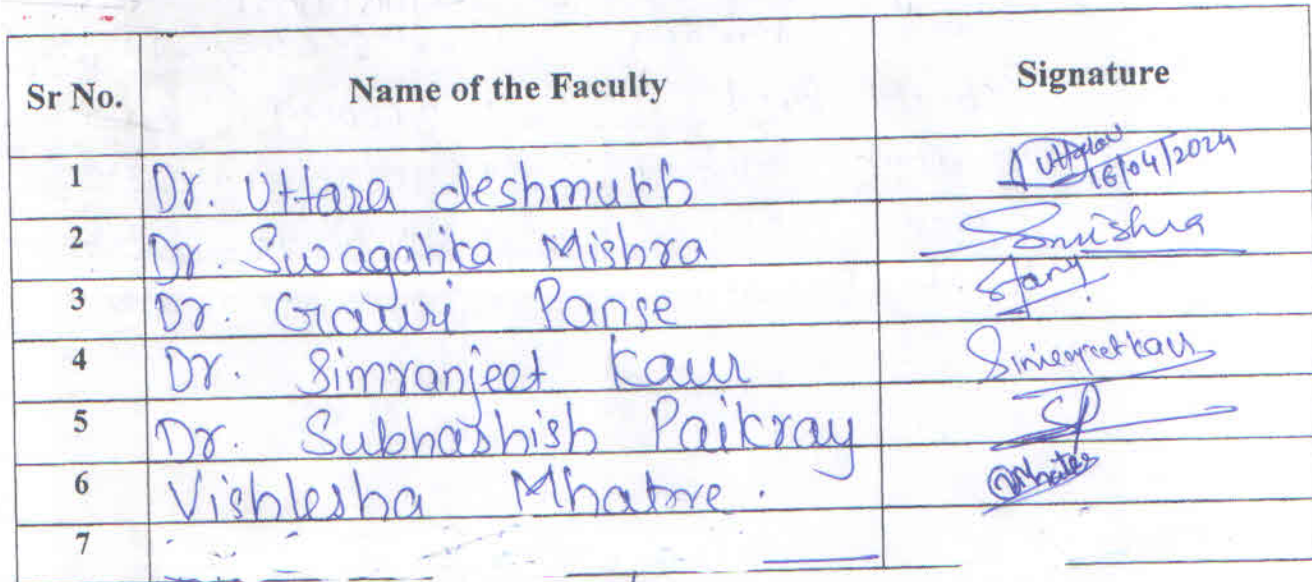 Sr No. Name of the Faculty Signature
1 Dr. Uttara deshmukh Uttara 16/04/2024
2 Dr. Swagatika Mishra Smishra
3 Dr. Gauri Panse
4 Dr. Simranjeet Kaur Simranjeet kaur
5 Dr. Subhashish Paikray SP
6 Vishlesha Mhatre. Mhatre
7